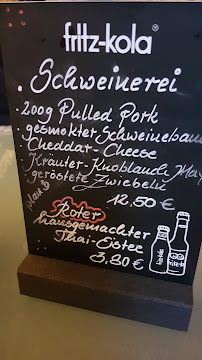 fritz-kola®
Schweinerei
- 200g Pulled Pork
gesmokter Schweinebau
Cheddar-Cheese
Kräuter-Knoblauch May
geröstete Zwiebeln
12,50 €
Roter
hausgemachter
Thai-Eistee
3,80 €